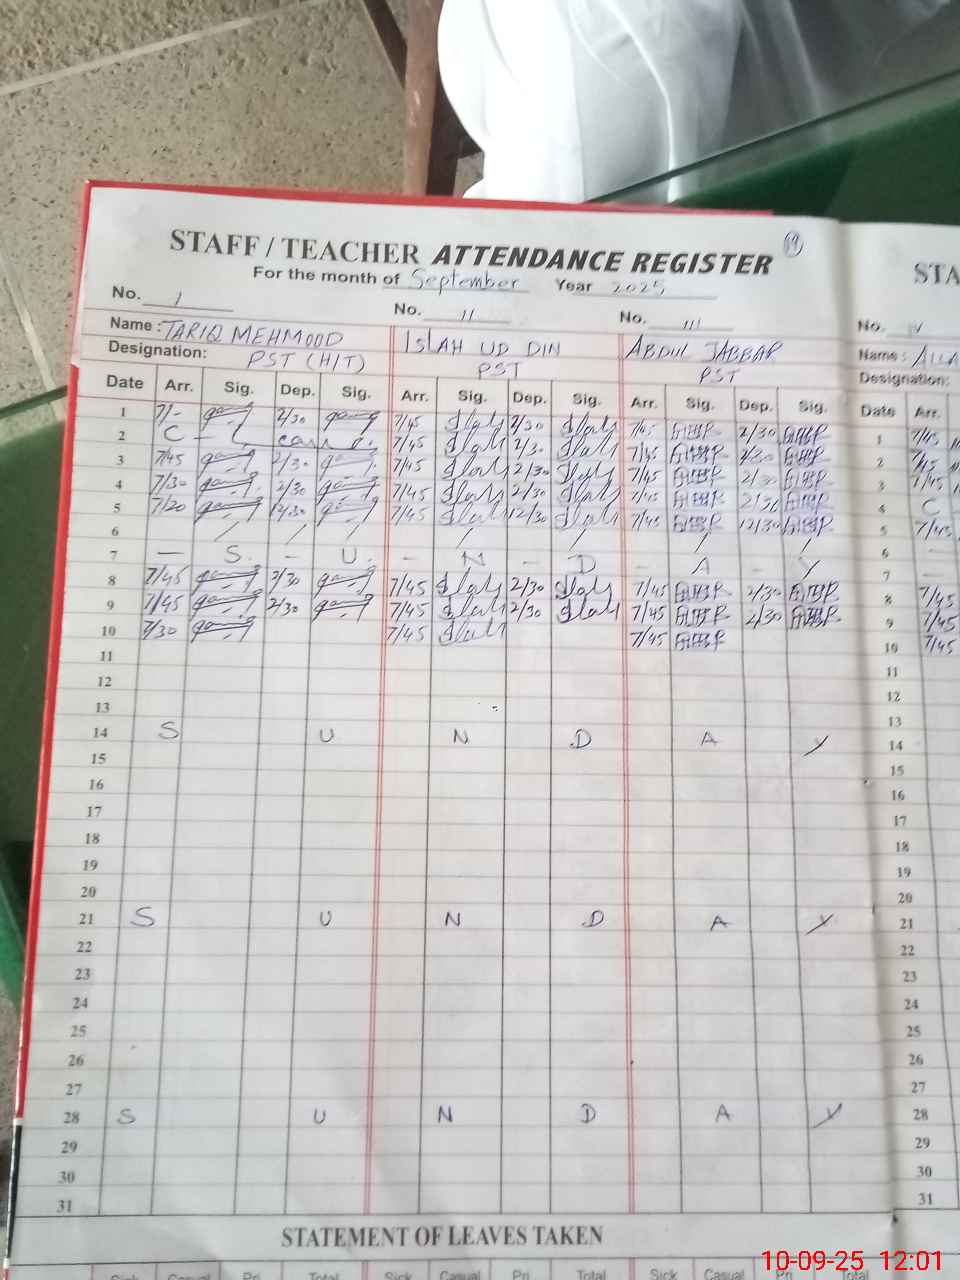 STAFF / TEACHER ATTENDANCE REGISTER 19
STA
For the month of September Year 2025
No. 1 No. 11 No. 111 No. IV
Name : TARIQ MEHMOOD ISLAH UD DIN ABDUL JABBAR Name : ALLA
Designation: PST (H/T) PST PST Designation:
Date Arr. Sig. Dep. Sig. Arr. Sig. Dep. Sig. Arr. Sig. Dep. Sig. Date Arr.
1 7/- 2/30 7/45 2/30 7/45 2/30 1 7/45
2 C - L 7/45 2/30 7/45 2/30 2 7/45
3 7/45 2/30 7/45 2/30 7/45 2/30 3 7/45
4 7/30 2/30 7/45 2/30 7/45 2/30 4 C
5 7/20 12/30 7/45 12/30 7/45 12/30 5 7/45
6 / / / / / / 6 —
7 — S — U — N — D — A — Y 7 —
8 7/45 2/30 7/45 2/30 7/45 2/30 8 7/45
9 7/45 2/30 7/45 2/30 7/45 2/30 9 7/45
10 7/30 7/45 7/45 10 7/45
11 11
12 12
13 13
14 S U N D A Y 14
15 15
16 16
17 17
18 18
19 19
20 20
21 S U N D A Y 21
22 22
23 23
24 24
25 25
26 26
27 27
28 S U N D A Y 28
29 29
30 30
31 31
STATEMENT OF LEAVES TAKEN
Sick Casual Pri Total Sick Casual Pri Total Sick Casual Pri Total
10-09-25 12:01